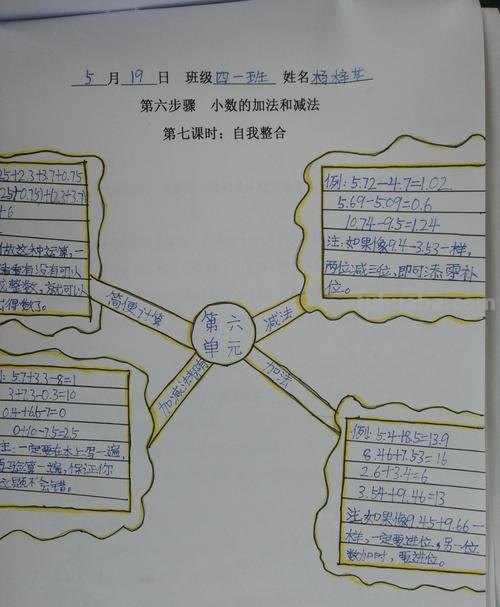 5月19日 班级四一班 姓名杨梓苹
第六步骤 小数的加法和减法
第七课时：自我整合
25+2.3+3.7+0.75
25+0.75)+(2.3+3.7
+6
做这种运算，一
有没有可以
整数，就可以
得数了。
例：5.72-4.7=1.02
5.69-5.09=0.6
10.74-9.5=1.24
注：如果像9.4-3.53一样，
两位减三位，即可添零补
位。
简便计算
第六
单元
减法
加法
加减法
：5.7+3.3-8=1
3+7.3-0.3=10
0.4+6.6-7=0
0+10-7.5=2.5
注：一定要在本上写一遍
再验算一遍，保证你
这题不会错。
例：5.4+8.5=13.9
8.46+7.53=16
2.6+3.4=6
3.54+9.46=13
注：如果像9.45+9.66一
样，一定要进位，另一位
数加时，要进位。